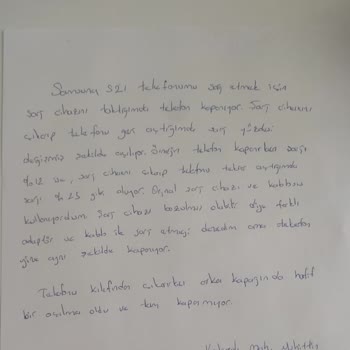 Samsung S21 telefonumu şarj etmek için
şarj cihazını taktığımda telefon kapanıyor. Şarj cihazını
çıkarıp telefonu geri açtığımda şarj yüzdesi
değişmiş şekilde açılıyor. Örneğin telefon kapanırken şarjı
%12 ise, şarj cihazını çıkarıp telefonu tekrar açtığımda
şarjı %23 gibi oluyor. Orjinal şarj cihazı ve kablosu
kullanıyordum. Şarj cihazı bozulmuş olabilir diye farklı
adaptör ve kablo ile şarj etmeyi denedim ama telefon
yine aynı şekilde kapanıyor.
Telefonu kılıfından çıkarınca arka kapağında hafif
bir açılma oldu ve tam kapanmıyor.